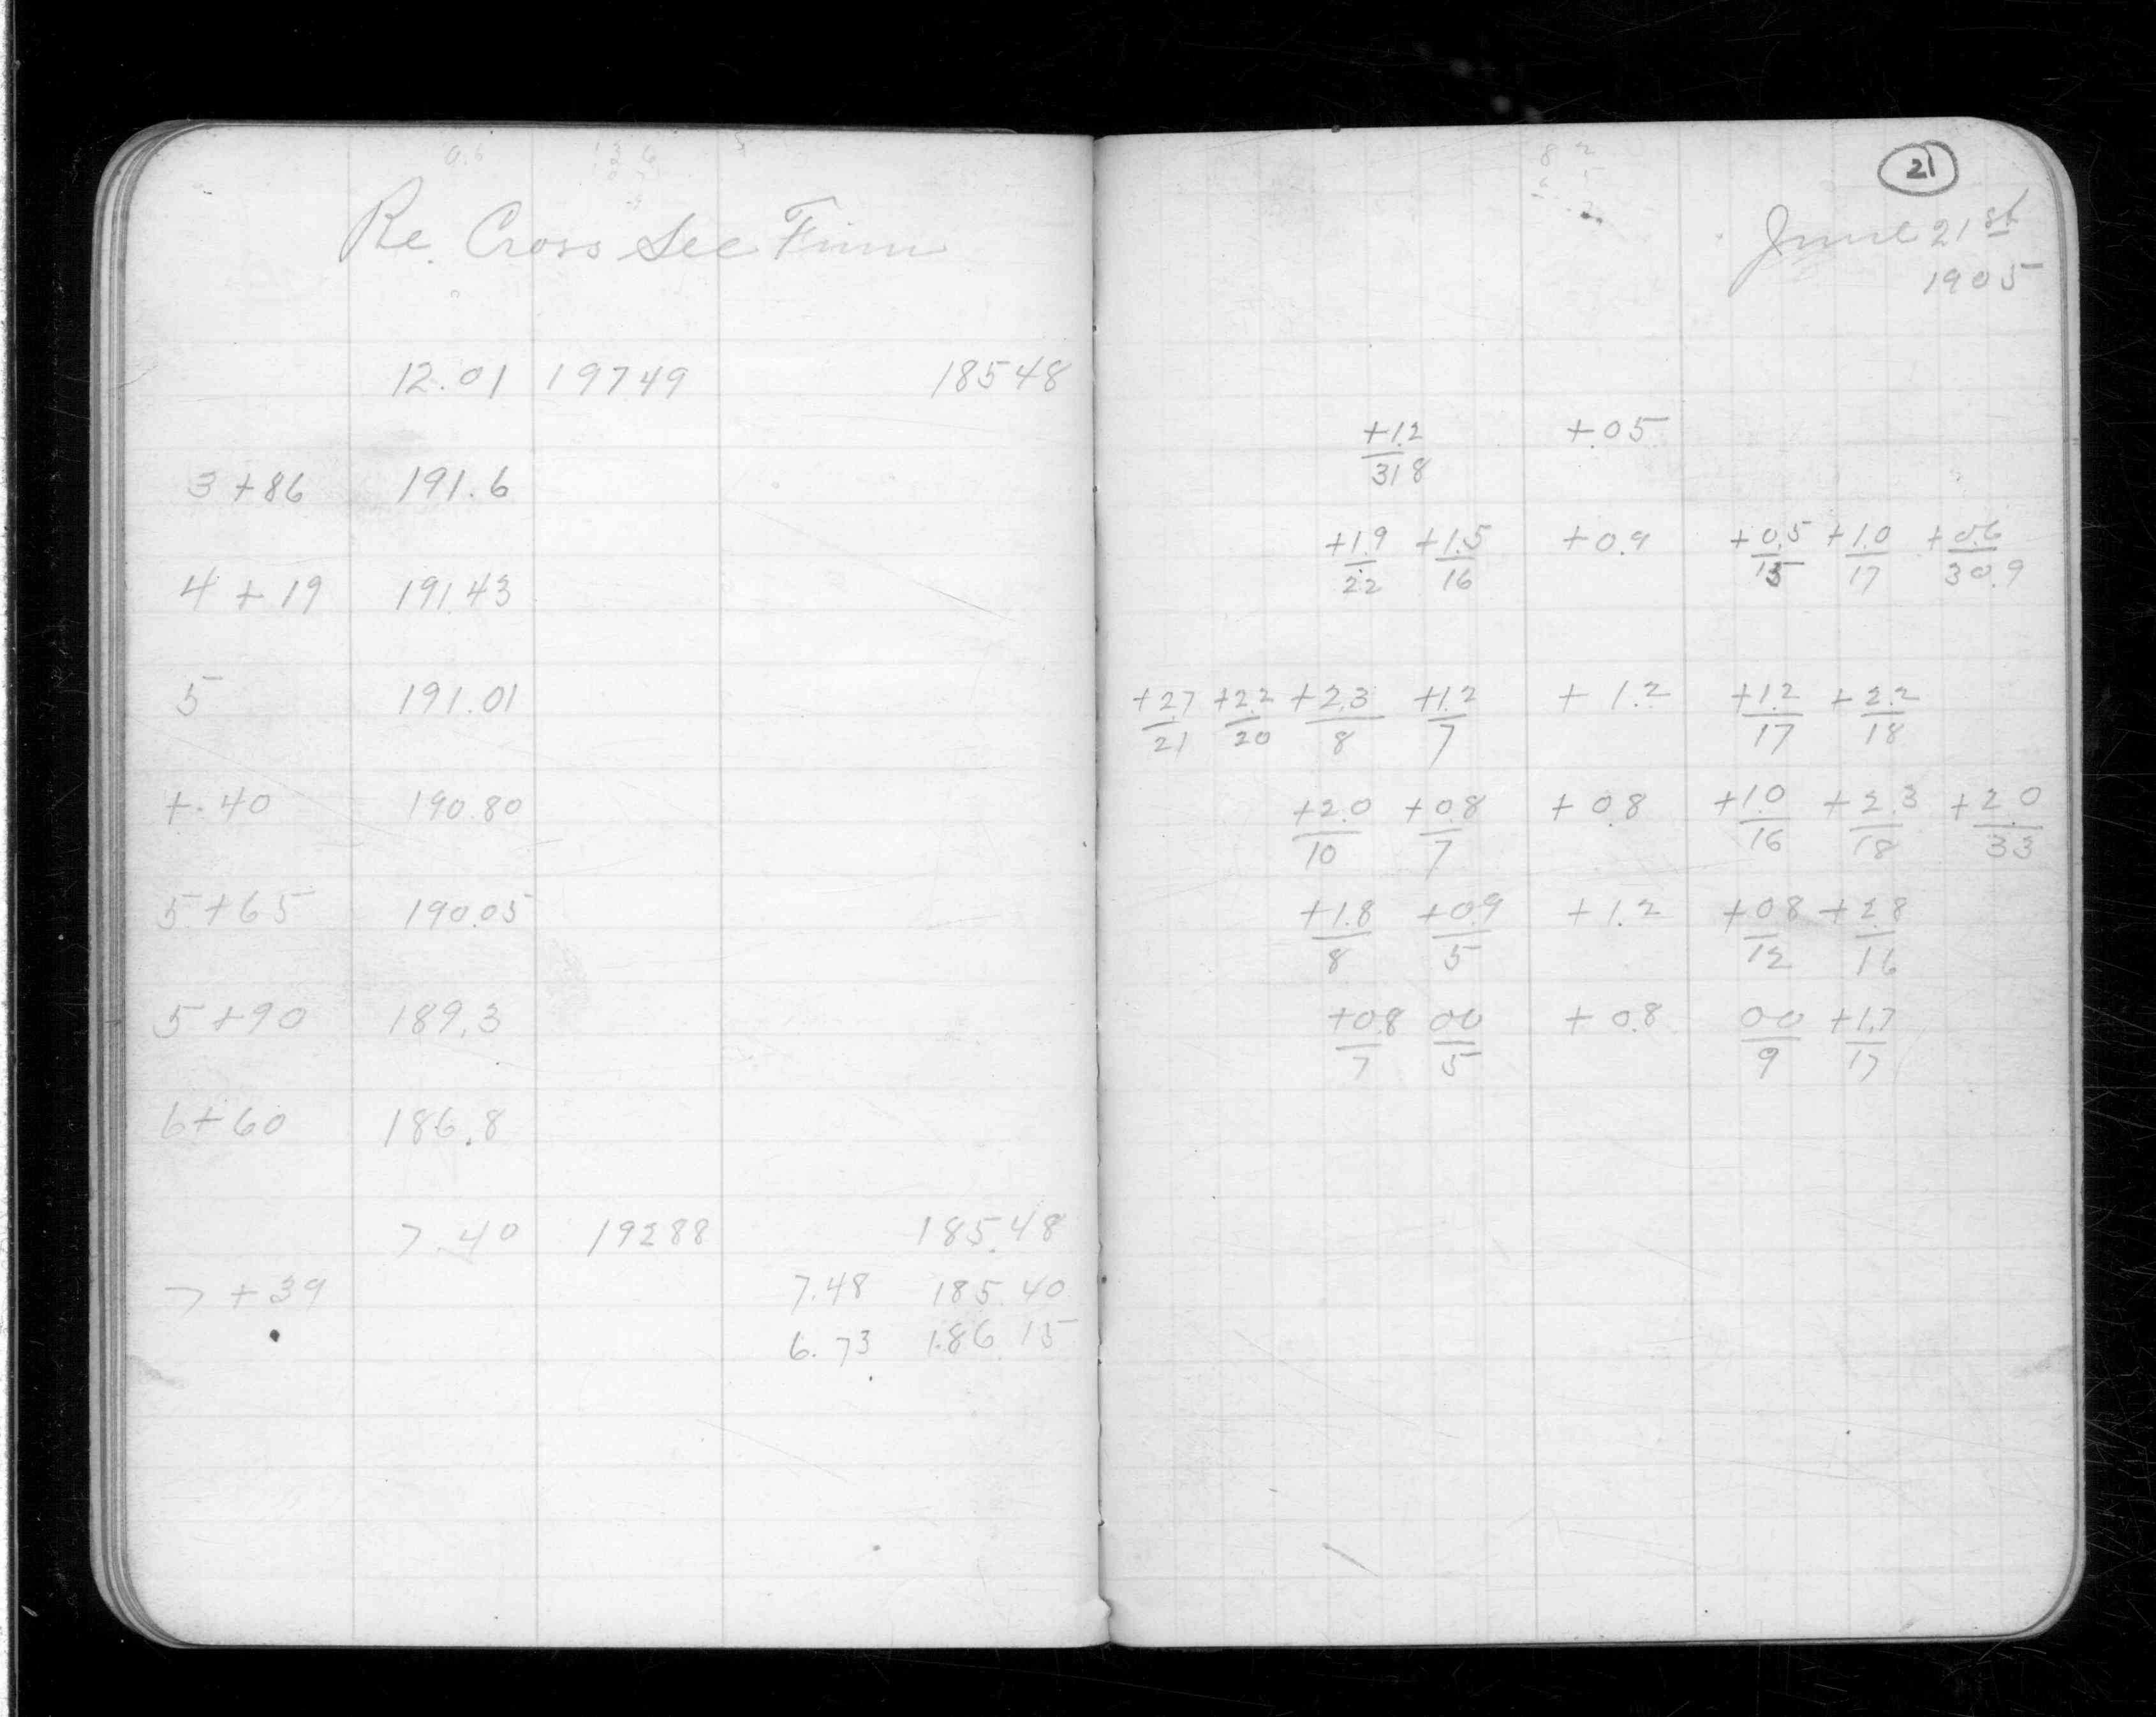 Re. Cross Sec Finn
12.01 19749 18548
3 +86 191.6
4 + 19 191.43
5 191.01
+ 40 190.80
5 +65 190.05
5 +90 189.3
6+60 186.8
7 40 19288 185.48
7 + 39 7.48 185.40
6.73 186 15
21
June 21 st
1905
+1.2 +.05
31 8
+1.9 +1.5 +0.9 +0.5 +1.0 +0.6
22 16 15 17 30.9
+2.7 +2.2 +2.3 +1.2 + 1.2 +1.2 +2.2
21 20 8 7 17 18
+2.0 +0.8 + 0.8 +1.0 +2.3 +2.0
10 7 16 18 33
+1.8 +0.9 +1.2 +0.8 +2.8
8 5 12 16
+0.8 00 + 0.8 00 +1.7
7 5 9 17